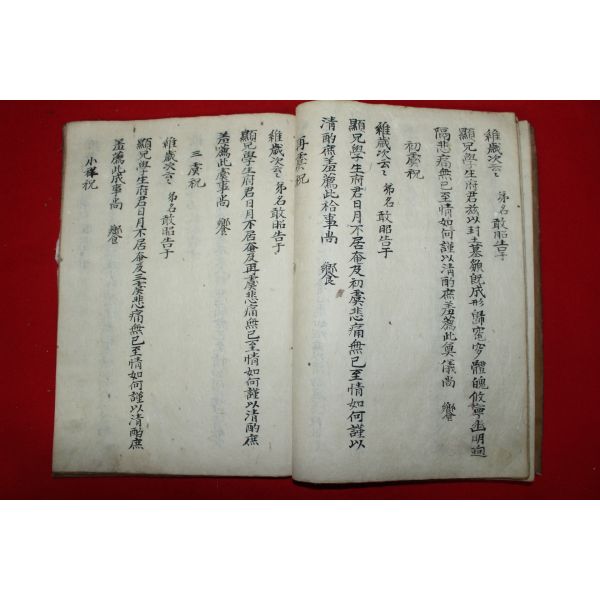 維歲次云々 弟名敢昭告于
顯兄學生府君玆以封土墓顏旣成形歸窀穸體魄攸寧幽明逈
隔悲痛無已至情如何謹以清酌庶羞薦此奠儀尚 饗
初虞祝
維歲次云々 弟名敢昭告于
顯兄學生府君日月不居奄及初虞悲痛無已至情如何謹以
清酌庶羞薦此祫事尚 饗
再虞祝
維歲次云々 弟名敢昭告于
顯兄學生府君日月不居奄及再虞悲痛無已至情如何謹以清酌庶
羞薦此虞事尚 饗
三虞祝
維歲次云々 弟名敢昭告于
顯兄學生府君日月不居奄及三虞悲痛無已至情如何謹以清酌庶
羞薦此成事尚 饗
小祥祝